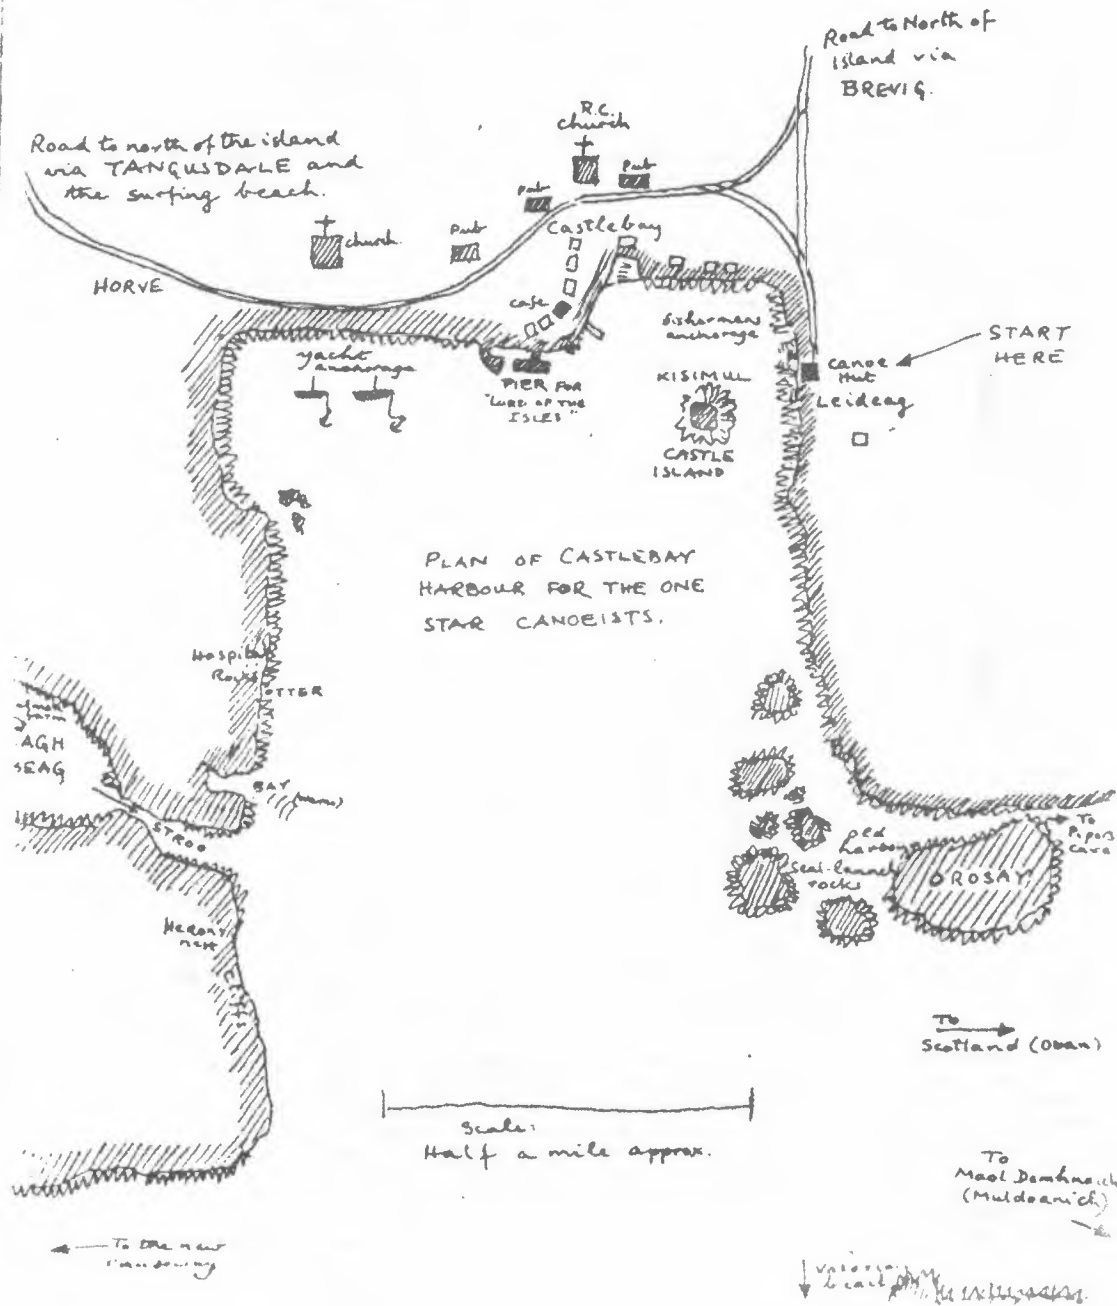 Road to North of
Island via
BREVIG.
R.C.
church
Road to north of the island
via TANGUSDALE and
the surfing beach.
Pub
Pub
church.
Pub
Castlebay
HORVE
cafe
fishermens
anchorage
START
HERE
yacht
anchorage
PIER FOR
"LORD OF THE
ISLES"
KISIMUL
CASTLE
ISLAND
canoe
Hut
Leideag
PLAN OF CASTLEBAY
HARBOUR FOR THE ONE
STAR CANOEISTS.
Hospital
Rocks
OTTER
BAY
AGH
SEAG
STROO
old
harbour
To
Pipers
Cave
Seal-
rocks
OROSAY
Herons
nest
CLIFFS
To
Scotland (Oban)
Scale:
Half a mile approx.
To
Maol Domhnaich
(Muldoanich)
To the new